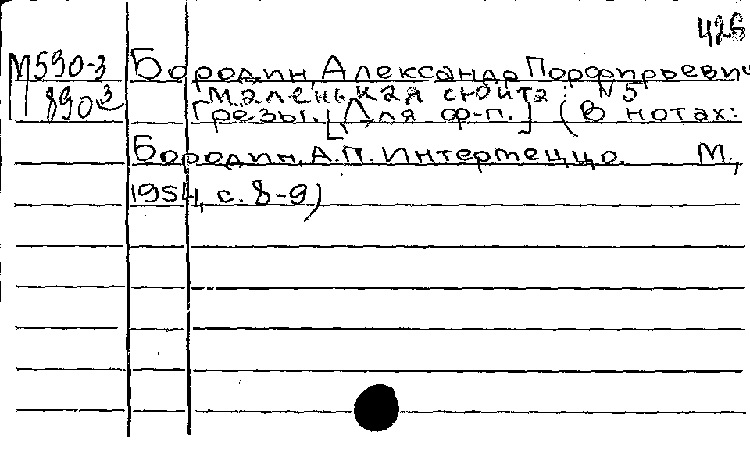 426
М590-3 Бородин, Александр Порфирьевич
Маленькая сюита: N 5
890 Грезы. [Для ф-п.] (В нотах:
Бородин, А.П. Интермеццо. М.,
1954, с. 8-9)